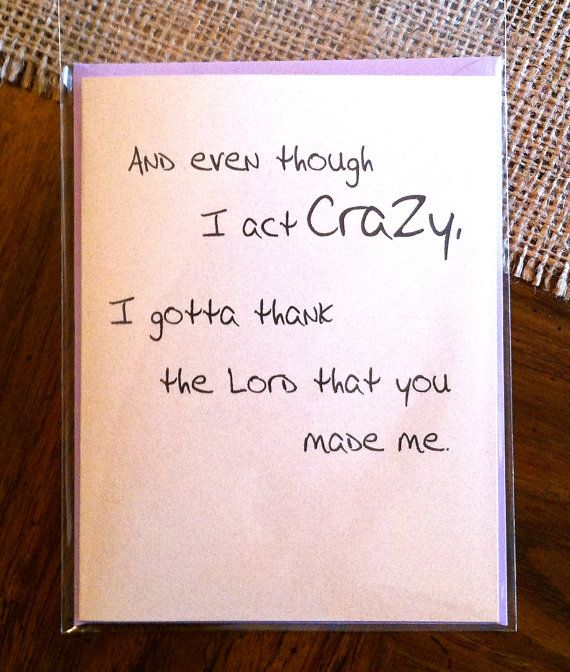 AND even though
I act CraZy,
I gotta thank
the LorD that you
maDe me.